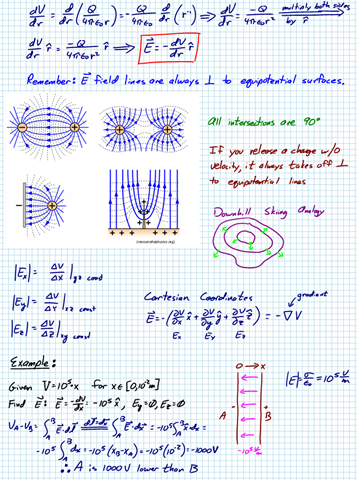 dV/dr = d/dr (Q/4πε₀r) = -Q/4πε₀ d/dr (r⁻) ⟹ dV/dr = -Q/4πε₀r² multiply both sides by r̂
dV/dr r̂ = -Q/4πε₀r² r̂ ⟹ E⃗ = -dV/dr r̂
Remember: E⃗ field lines are always ⊥ to equipotential surfaces.
All intersections are 90°
If you release a charge w/o
velocity, it always takes off ⊥
to equipotential lines
Downhill Skiing Analogy
|Eₓ| = ΔV/Δx |yz const
|Ey| = ΔV/Δy |xz const
|Ez| = ΔV/Δz |xy const
Cartesian Coordinates
gradient
E⃗ = -(∂V/∂x x̂ + ∂V/∂y ŷ + ∂V/∂z ẑ) = -∇V
Example:
Given V = 10⁵x for x ∈ [0, 10⁻²m]
Find E⃗: E⃗ = -dV/dx = -10⁵ x̂, Ey = 0, Ez = 0
V_A - V_B = ∫_A^B E⃗·dl⃗ = ∫_A^B E⃗·dx⃗ = -10⁵ ∫_A^B x̂ dx =
-10⁵ ∫_A^B dx = -10⁵ (x_B - x_A) = -10⁵ (10⁻²) = -1000V
∴ A is 1000V lower than B
0 → x
A - + B
-10⁵ V/m
|E| = σ/ε₀ = 10⁵ V/m